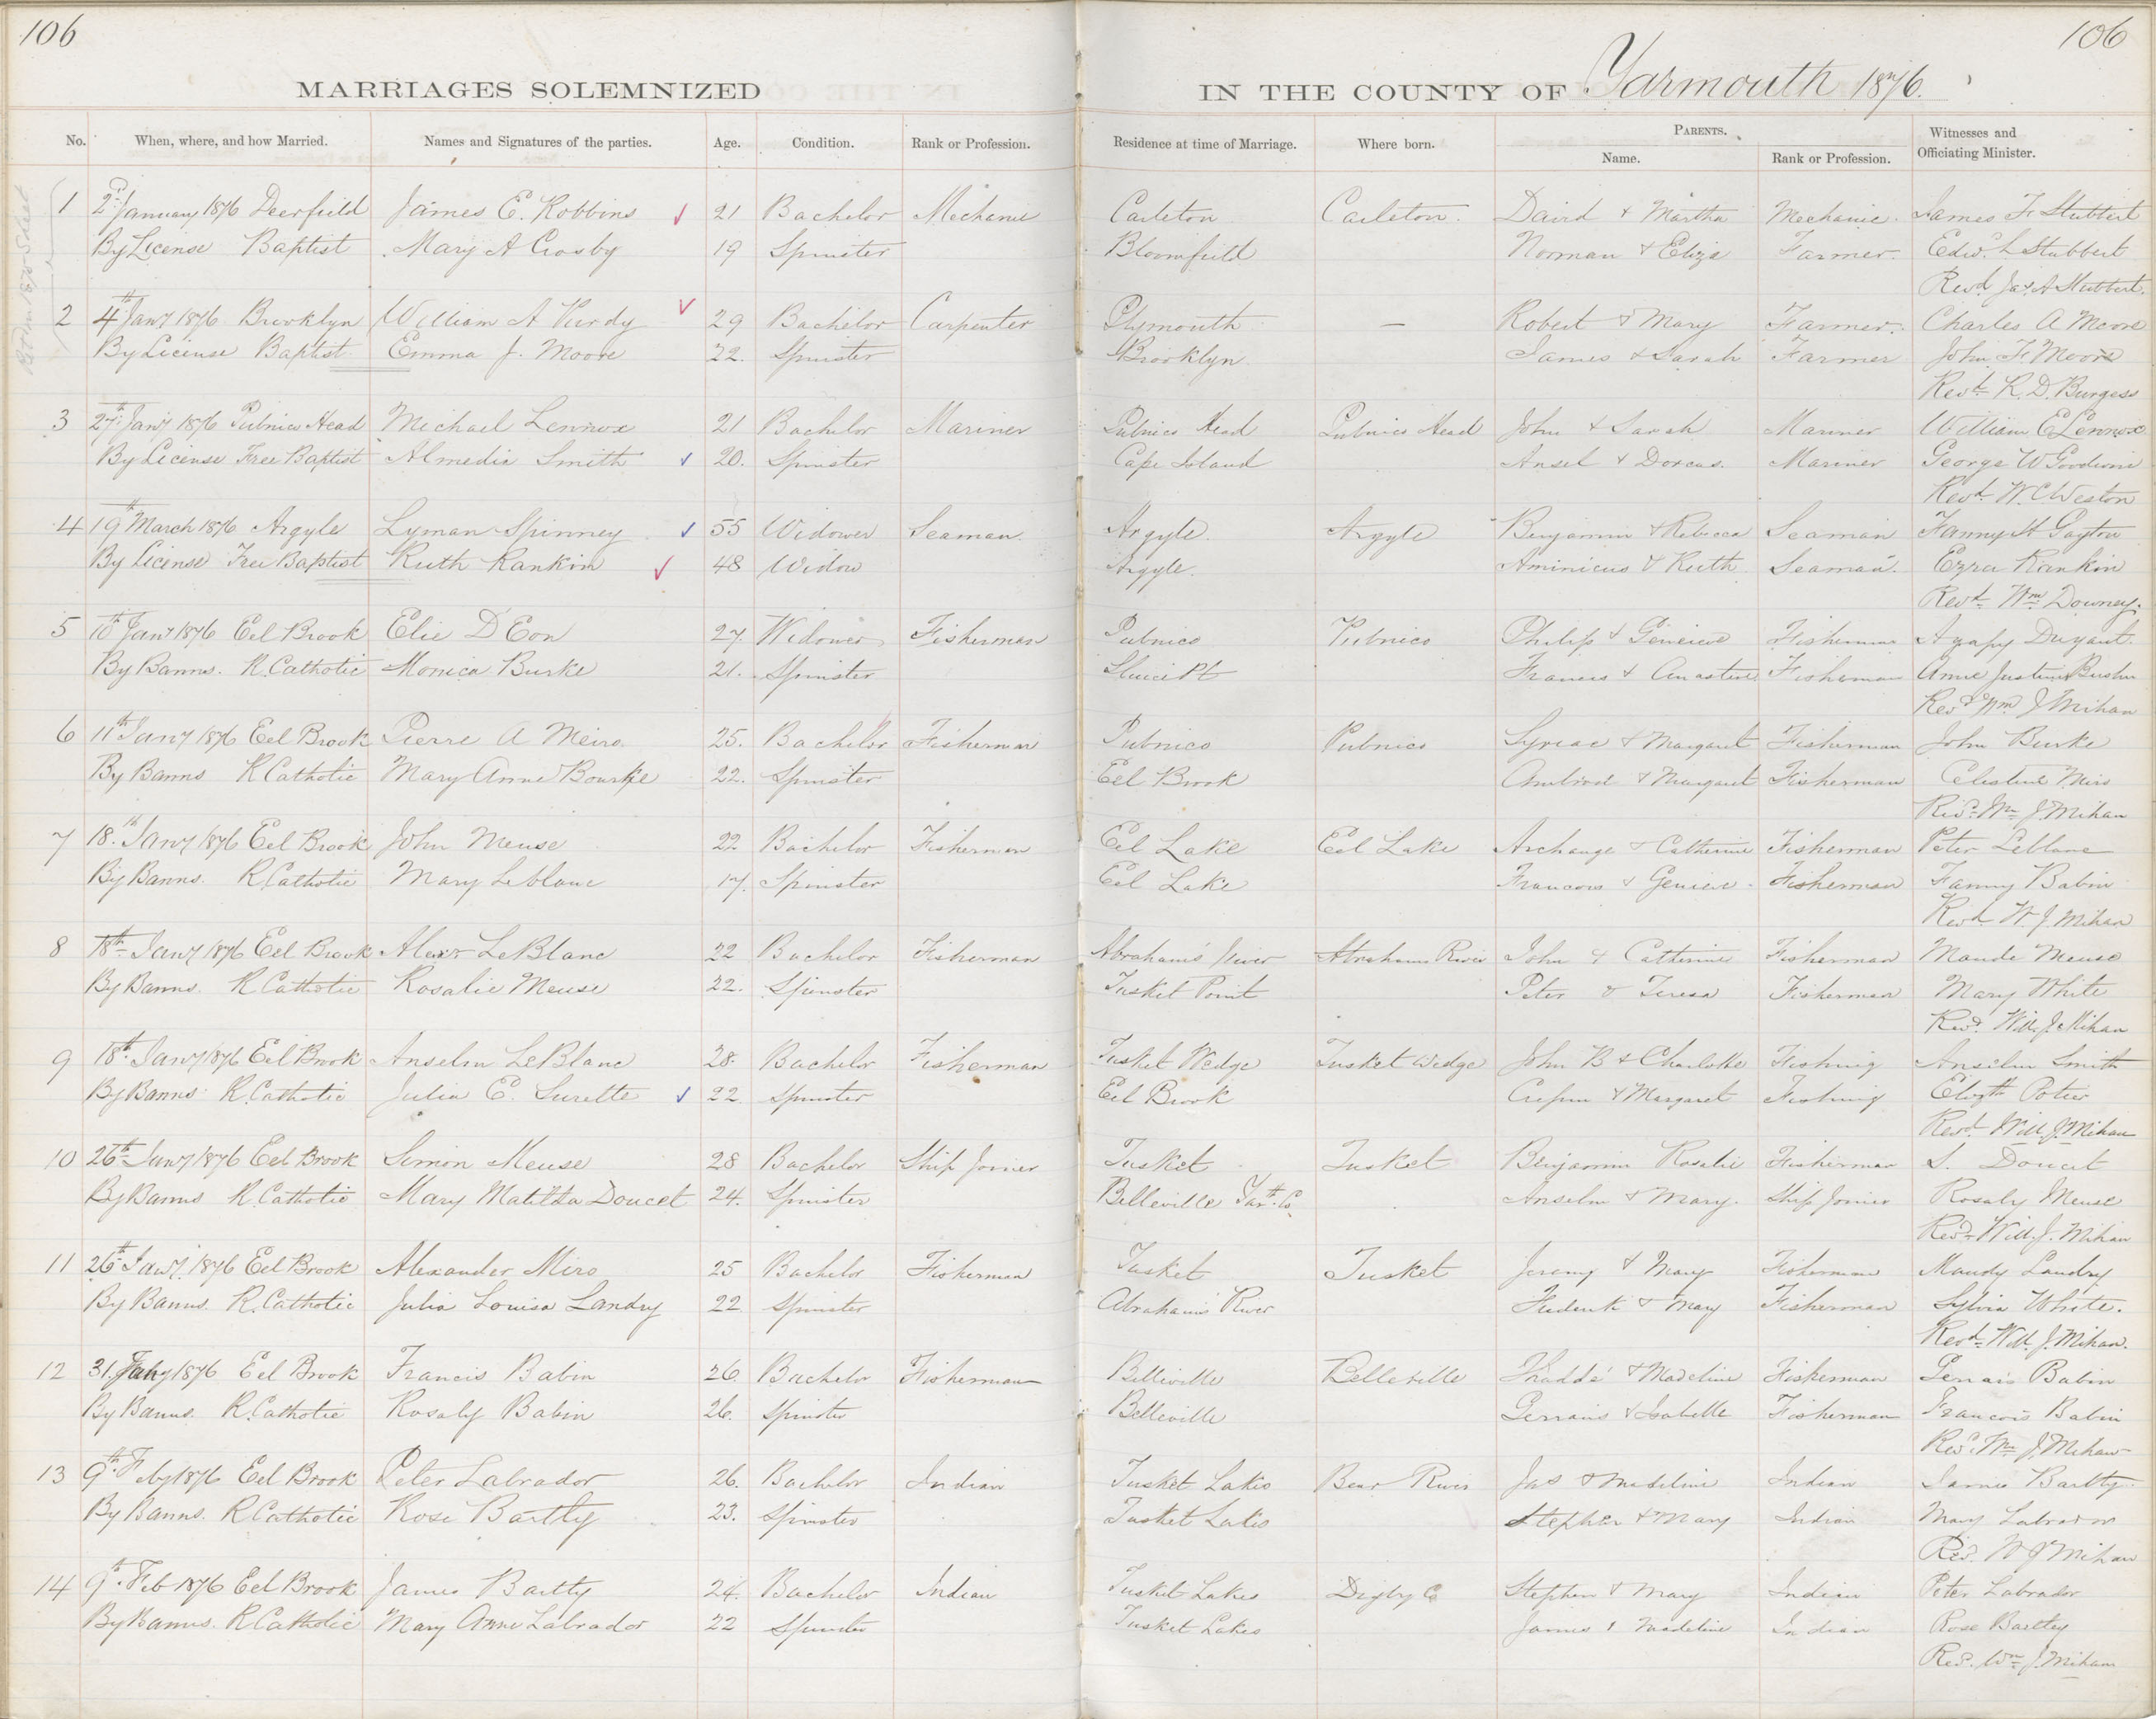 106
106
MARRIAGES SOLEMNIZED
IN THE COUNTY OF Yarmouth 1876.
No. When, where, and how Married. Names and Signatures of the parties. Age. Condition. Rank or Profession. Residence at time of Marriage. Where born. PARENTS. Name. Rank or Profession. Witnesses and Officiating Minister.
1 2d January 1876 Deerfield James E. Robbins 21 Bachelor Mechanic Carleton Carleton. David & Martha Mechanic. James F Stubbert
By License Baptist Mary A Crosby 19 Spinster Bloomfield Norman & Eliza Farmer. Edwd. L Stubbert
Revd. Jas. A Stubbert.
2 4th Jany 1876 Brooklyn William A Purdy 29 Bachelor Carpenter Plymouth — Robert & Mary Farmer. Charles A Moore
By License Baptist Emma J. Moore 22. Spinster Brooklyn James & Sarah Farmer John F. Moore
Revd. R. D. Burgess
3 27th Jany 1876 Pubnico Head Michael Lennox 21 Bachelor Mariner Pubnico Head Pubnico Head John & Sarah Mariner William E Lennox
By License Free Baptist Almedia Smith 20. Spinster Cape Island Ansel & Dorcas. Mariner George W Goodwin
Revd. W. C Weston
4 19th March 1876 Argyle Lyman Spinney 55 Widower Seaman Argyle. Argyle Benjamin & Rebecca Seaman Fanny H Gayton
By License Free Baptist Ruth Rankin 48 Widow Argyle. Aminicus & Ruth Seaman. Ezra Rankin
Revd. Wm Downey.
5 10th Jany 1876 Eel Brook Elie D'Eon 27. Widower Fisherman Pubnico Pubnico Philip & Fisherman Agapy
By Banns. R. Catholic Monica Burke 21. Spinster Sluice Pt Francis & Fisherman Anne Justine
Revd Wm J Mihan
6 11th Jany 1876 Eel Brook Pierre A Meiro. 25. Bachelor Fisherman Pubnico Pubnico Syriac & Margaret Fisherman John Burke
By Banns R Catholic Mary Anne Bourke 22. Spinster Eel Brook & Margaret Fisherman Celestine Miro
Revd. Wm J. Mihan
7 18.th Jany 1876 Eel Brook John Meuse 22. Bachelor Fisherman Eel Lake Eel Lake Archange & Catherine Fisherman Peter Leblanc
By Banns. R. Catholic Mary Leblanc 17. Spinster Eel Lake Francois & Fisherman Fanny Babin
Revd W. J. Mihan
8 18th Jany 1876 Eel Brook Alexr LeBlanc 22 Bachelor Fisherman Abraham's River Abrahams River John & Catherine Fisherman Maude Meuse
By Banns. R Catholic Rosalie Meuse 22. Spinster Tusket Point Peter & Teresa Fisherman Mary White
Revd. Will. J. Mihan
9 18th. Jany 1876 Eel Brook Anselm LeBlanc 28. Bachelor Fisherman Tusket Wedge Tusket Wedge John B & Charlotte Fishing Anselm Smith
By Banns R. Catholic Julia E. Surette 22. Spinster Eel Brook & Margaret Fishing Elizth Potier
Revd. Will. J. Mihan
10 26th Jany 1876 Eel Brook Simon Meuse 28 Bachelor Ship Joiner Tusket Tusket Benjamin Rosalie Fisherman S. Doucet
By Banns R. Catholic Mary Matilda Doucet 24. Spinster Belleville Yarth. Co. Anselm & Mary. Ship Joiner Rosaly Meuse
Revd. Will. J. Mihan
11 26th Jany. 1876 Eel Brook Alexander Miro 25 Bachelor Fisherman Tusket Tusket Jeremy & Mary Fisherman Mandy Landry
By Banns. R. Catholic Julia Louisa Landry 22 Spinster Abrahams River Frederik & Mary Fisherman Sylvia White.
Revd. Will. J. Mihan.
12 31. 1876 Eel Brook Francis Babin 26. Bachelor Fisherman Belleville Belleville Thaddé & Madeline Fisherman Babin
By Banns. R. Catholic Rosaly Babin 26. Spinster Belleville & Isabelle Fisherman Francois Babin
Revd. Wm J. Mihan
13 9th. Feby 1876 Eel Brook Peter Labrador 26. Bachelor Indian Tusket Lakes Bear River Jas & Madeline Indian James Bartly.
By Banns. R Catholic Rose Bartly 23. Spinster Tusket Lakes Stephen & Mary Indian Mary Labrador
Revd. W J Mihan
14 9th. Feb 1876 Eel Brook James Bartly 24. Bachelor Indian Tusket Lakes Digby Co Stephen & Mary Indian Peter Labrador
By Banns. R. Catholic Mary Anne Labrador 22 Spinster Tusket Lakes James & Madeline Indian Rose Bartley
Revd. Wm J. Mihan